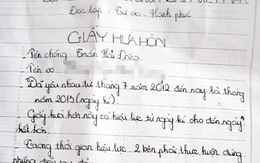 Độc lập - Tự do - Hạnh phúc
GIẤY HỨA HÔN
- Tên chồng: Trần Hải Đăng
- Tên vợ:
- Đã yêu nhau từ tháng 7 năm 2012 đến nay là tháng
năm 2015 (ngày kí)
Giấy hứa hôn này có hiệu lực từ ngày kí cho đến ngày
kết hôn.
Trong thời gian hiệu lực 2 bên phải thực hiện đúng
những